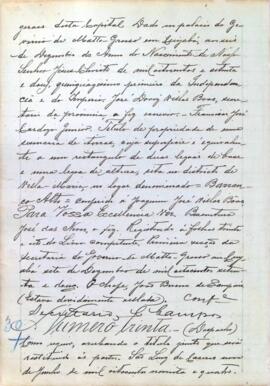 geraes desta Capital. Dado em palacio do Go-
verno de Matto Grosso em Cuyabá, aos seis
de Dezembro do Anno do Nascimento de Nosso
Senhor Jesus Christo de mil oitocentos e setenta
e dous, quinquagesimo primeiro da Independen-
cia e do Imperio. José
da provincia o fiz escrever. Francisco José
Cardozo Junior. Titulo de propriedade de uma
sesmaria de terras, cuja superficie é equivalen-
te a um rectangulo de duas legoas de base
e uma legoa de altura, sita no districto de
Villa Maria, no logar denominado - Barran-
co Alto - conferido a Joaquim José
Para Vossa Excellencia Ver. Boaventura
José das Neves, o fez. Registrado á folhas
do Livro competente. Primeira secção da
secretaria do Governo de Matto Grosso em Cuy-
abá sete de Dezembro de mil oitocentos setenta
e dous. O chefe, João Bueno de Sampaio
(Estava devidamente sellado). Confe
Depositario, C. Campos
30
Numero trinta - (Despacho)
Como requer, archivando o titulo junto que será
restituido á parte. São Luiz de Caceres nove
de Junho de mil oitocentos noventa e quatro.